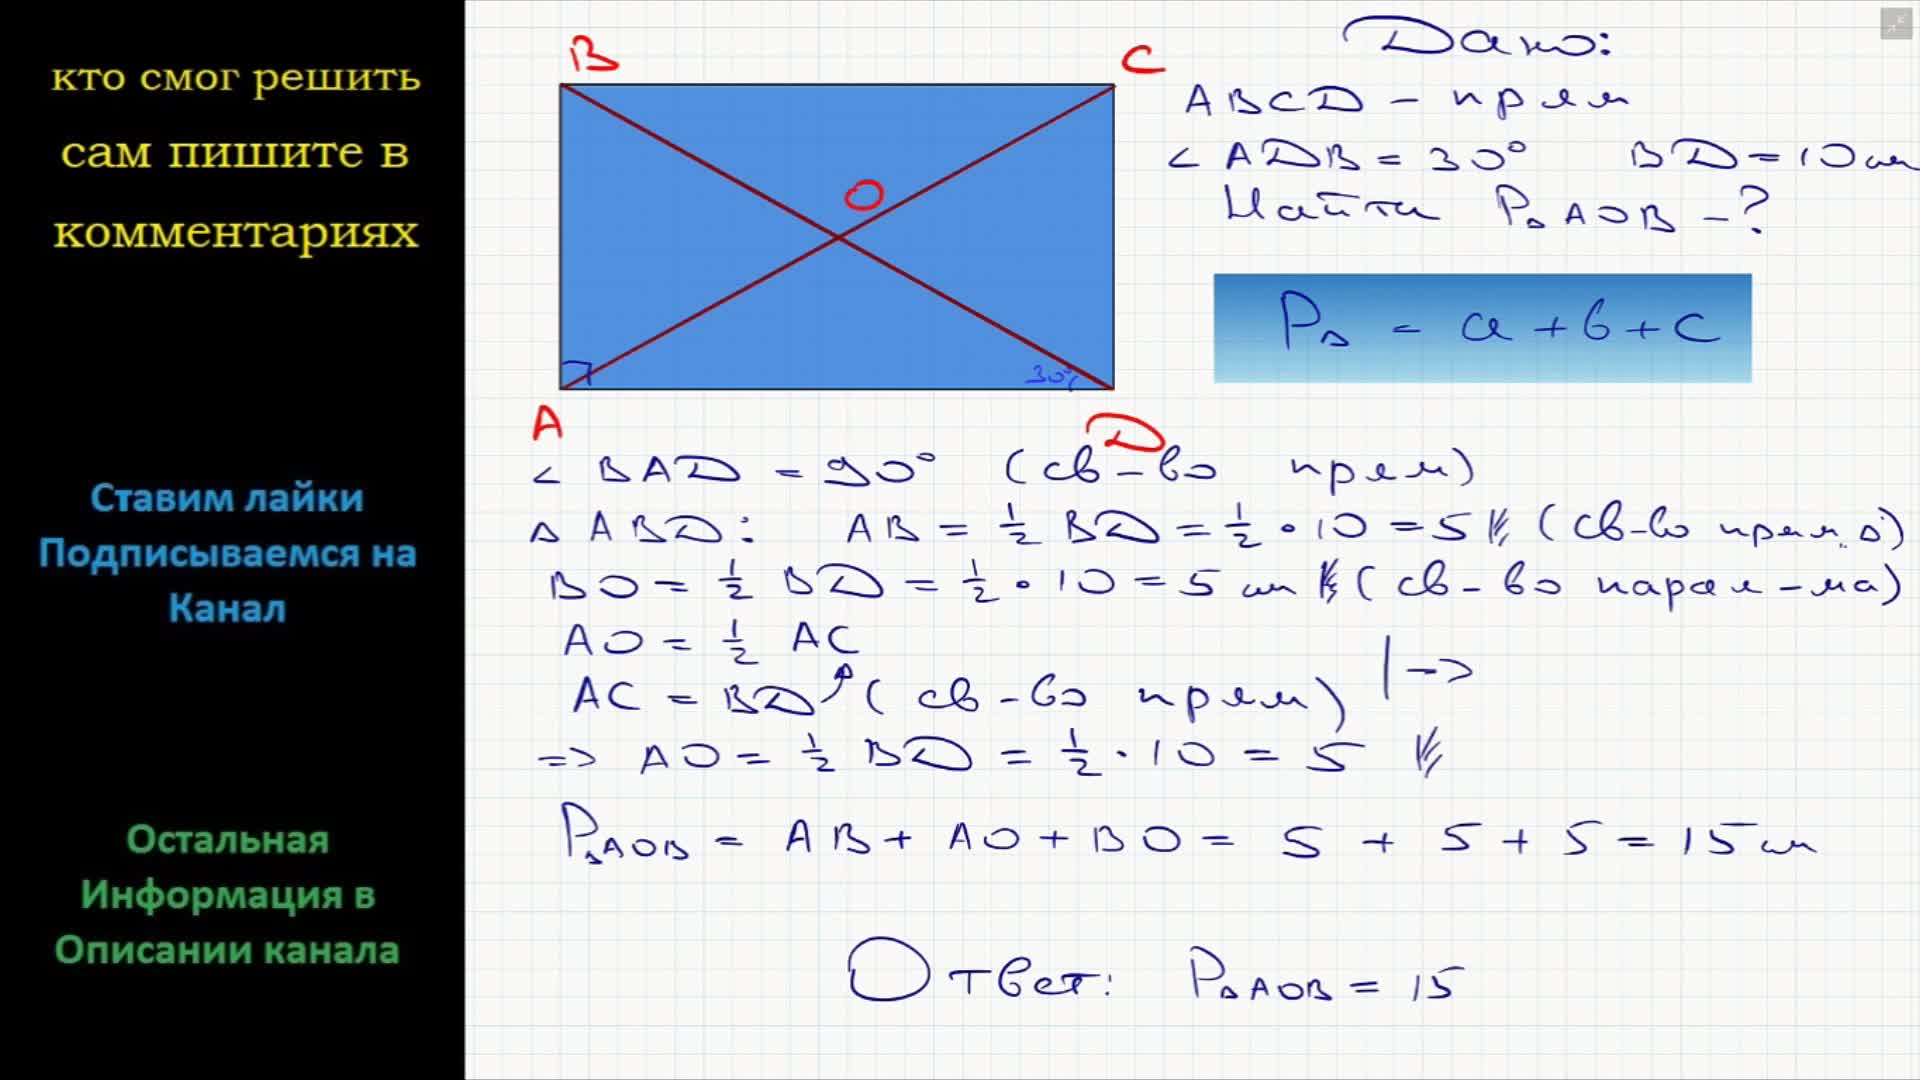 кто смог решить
сам пишите в
комментариях
Ставим лайки
Подписываемся на
Канал
Остальная
Информация в
Описании канала
B
C
O
30°
A
D
Дано:
ABCD – прям
∠ ADB = 30° BD = 10 см
Найти P△AOB – ?
P△ = a + b + c
∠ BAD = 90° (св-во прям)
△ ABD: AB = 1/2 BD = 1/2 · 10 = 5 (св-во прям. △)
BO = 1/2 BD = 1/2 · 10 = 5 см (св-во парал-ма)
AO = 1/2 AC
AC = BD (св-во прям) | ->
=> AO = 1/2 BD = 1/2 · 10 = 5
P△AOB = AB + AO + BO = 5 + 5 + 5 = 15 см
Ответ: P△AOB = 15